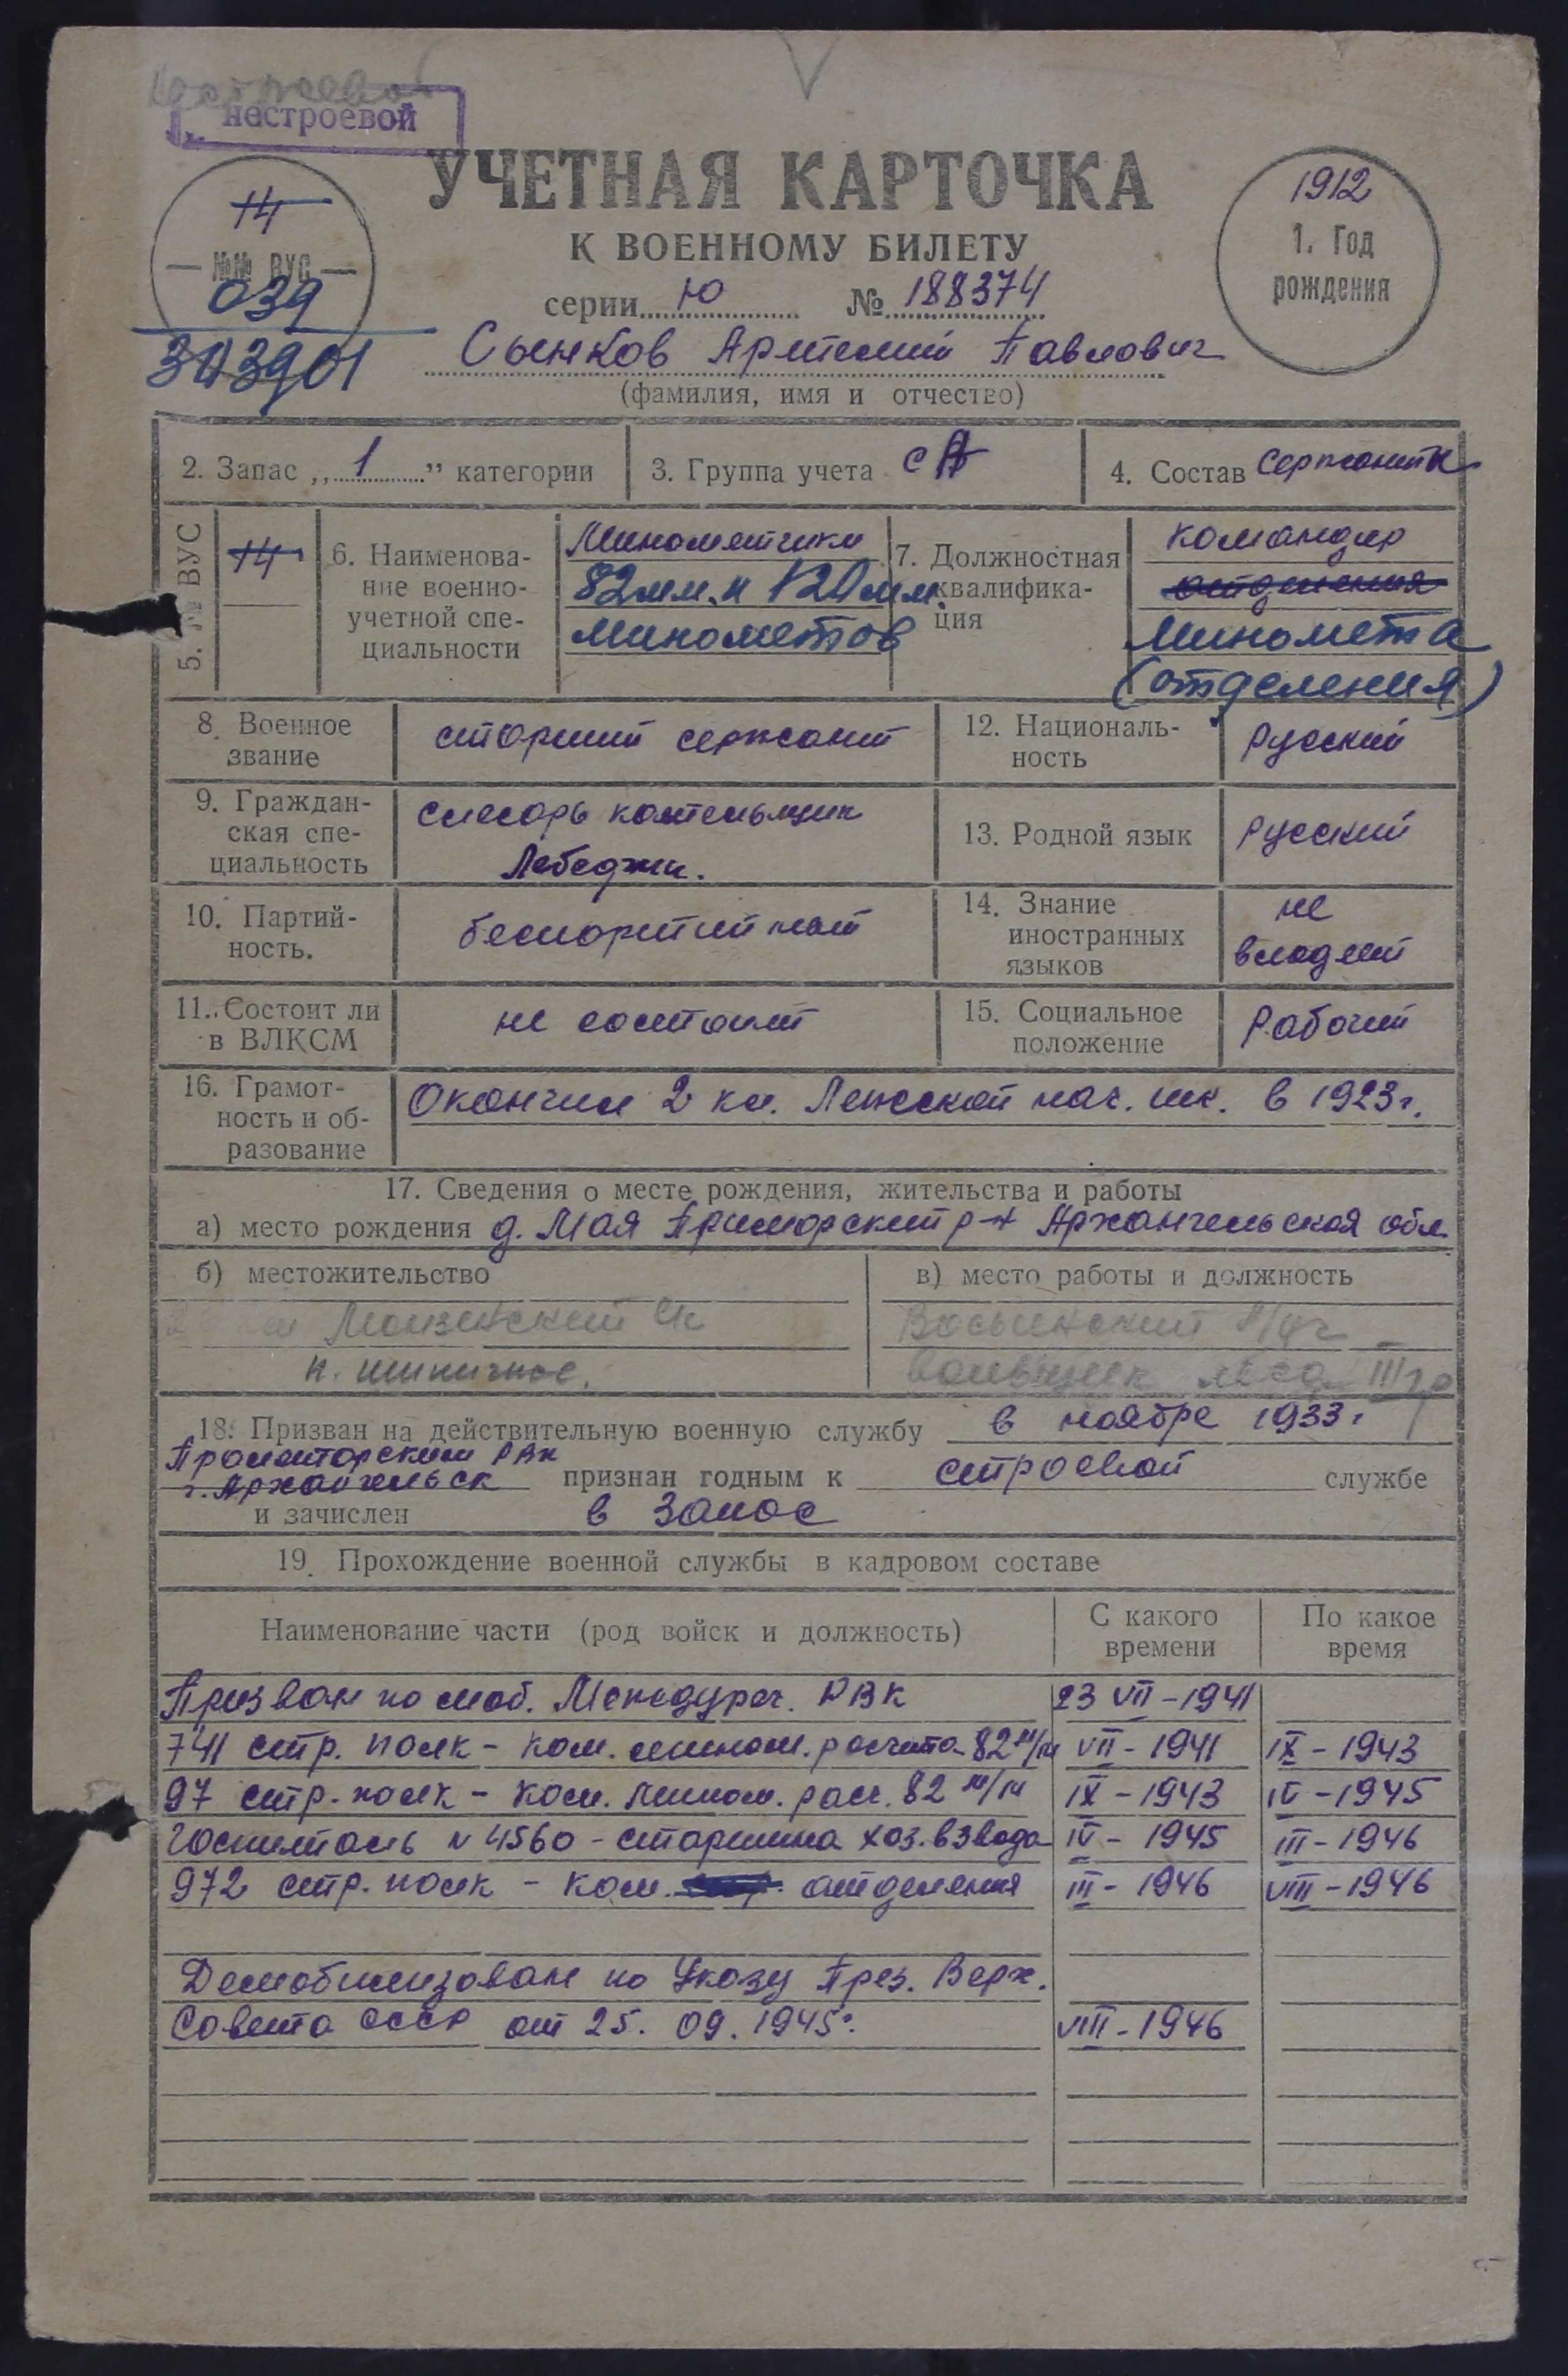 нестроевой
нестроевой
УЧЕТНАЯ КАРТОЧКА
К ВОЕННОМУ БИЛЕТУ
серии Ю № 188374
14
№№ ВУС
039
303901
1912
1. Год
рождения
Сынков Артемий Павлович
(фамилия, имя и отчество)
2. Запас „1" категории
3. Группа учета СА
4. Состав Сержантск
5. № ВУС 14
6. Наименова-
ние военно-
учетной спе-
циальности
Минометчики
82мм. и 120мм.
Минометов
7. Должностная
квалифика-
ция
командир
отделения
Миномета
(отделения)
8. Военное
звание
старший сержант
12. Националь-
ность
Русский
9. Граждан-
ская спе-
циальность
слесарь котельщик
Лебедчик.
13. Родной язык
Русский
10. Партий-
ность.
беспартийный
14. Знание
иностранных
языков
не
владеет
11. Состоит ли
в ВЛКСМ
не состоит
15. Социальное
положение
Рабочий
16. Грамот-
ность и об-
разование
Окончил 2 кл. нач. шк. в 1923г.
17. Сведения о месте рождения, жительства и работы
а) место рождения д. Мая Приморский р-н Архангельская обл.
б) местожительство
в) место работы и должность
п.
леса III гр
18. Призван на действительную военную службу в ноябре 1933г
РВК
г. Архангельск признан годным к строевой службе
и зачислен в Запас
19. Прохождение военной службы в кадровом составе
Наименование части (род войск и должность)
С какого
времени
По какое
время
Призван по моб. Междуреч. РВК 23 VII-1941
741 стр. полк - ком. мином. расчета 82 м/м VII-1941 IX-1943
97 стр. полк - ком. мином. расч. 82 м/м IX-1943 IV-1945
Госпиталь N 4560 - старшина хоз. взвода IV-1945 III-1946
972 стр. полк - ком. отделения III-1946 VIII-1946
Демобилизован по Указу През. Верх.
Совета СССР от 25.09.1945г. VIII-1946